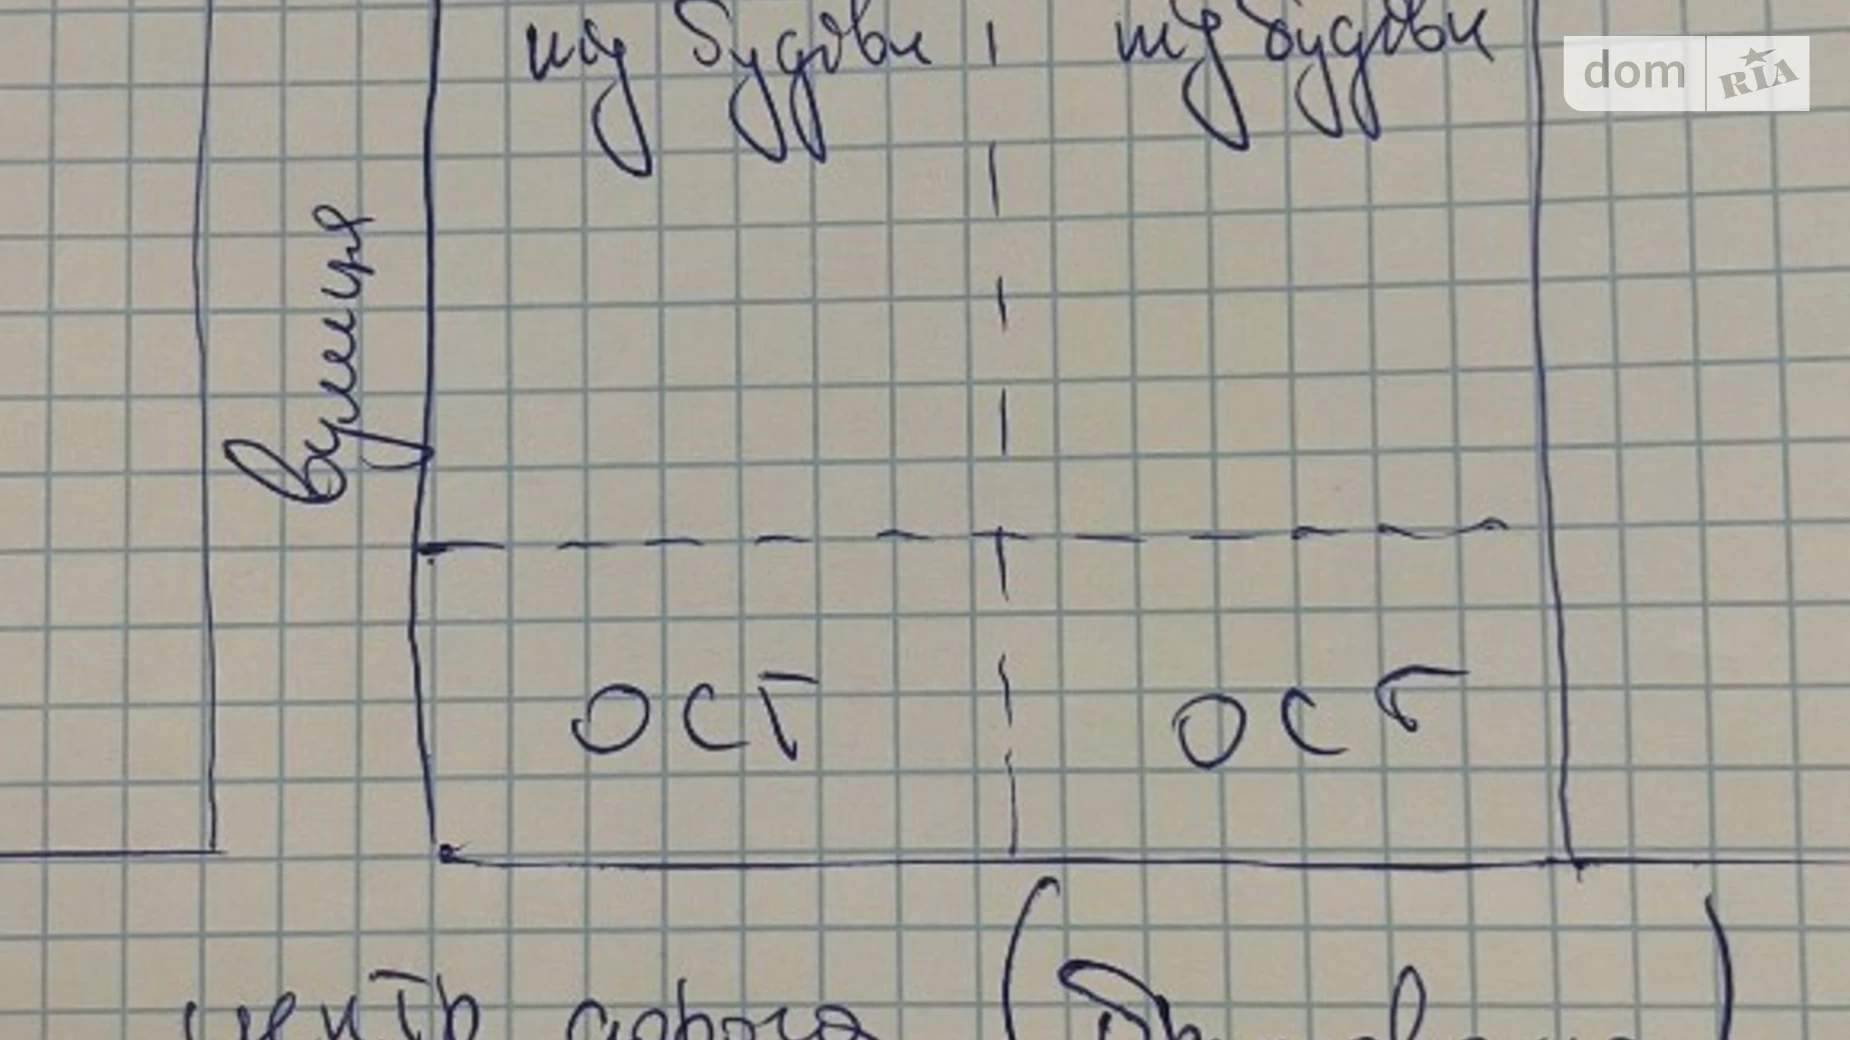 під будови під будови
dom RIA
вулиця
ОСГ ОСГ
центр дорога